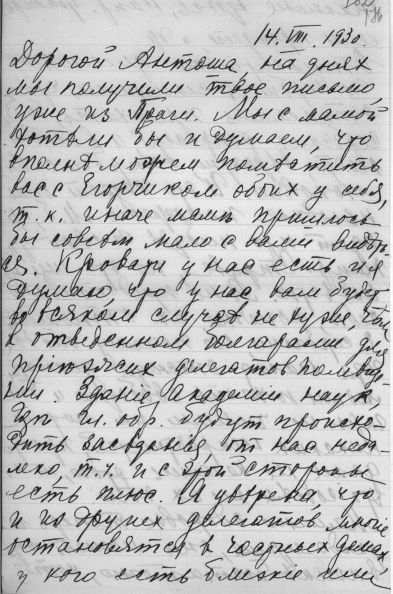 14. III. 1930.
Дорогой Антоша, на днях
мы получили твое письмо
уже из Праги. Мы с мамой
хотели бы и думаем, что
вполнѣ можем помѣстить
вас с Егорчиком обоих у себя,
т. к. иначе мамѣ пришлось
бы совсѣм мало с вами видѣть-
ся. Кровати у нас есть и я
думаю, что у нас вам будет
во всяком случаѣ не хуже, чѣм
в отведенном болгарами для
пріѣзжих делегатов помѣще-
нии. Зданіе Академіи наук,
гдѣ гл. обр. будут происхо-
дить засѣданія, от нас неда-
леко, т. ч. и с этой стороны
есть плюс. Я увѣрена, что
и из других делегатов многие
остановятся в частных домах
у кого есть близкіе или